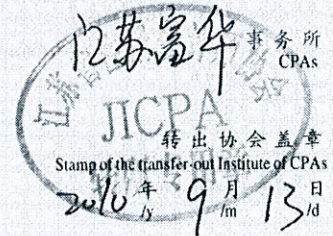 江苏富华事务所
CPAs
JICPA
转出协会盖章
Stamp of the transfer-out Institute of CPAs
2010年9月13日
/y /m /d